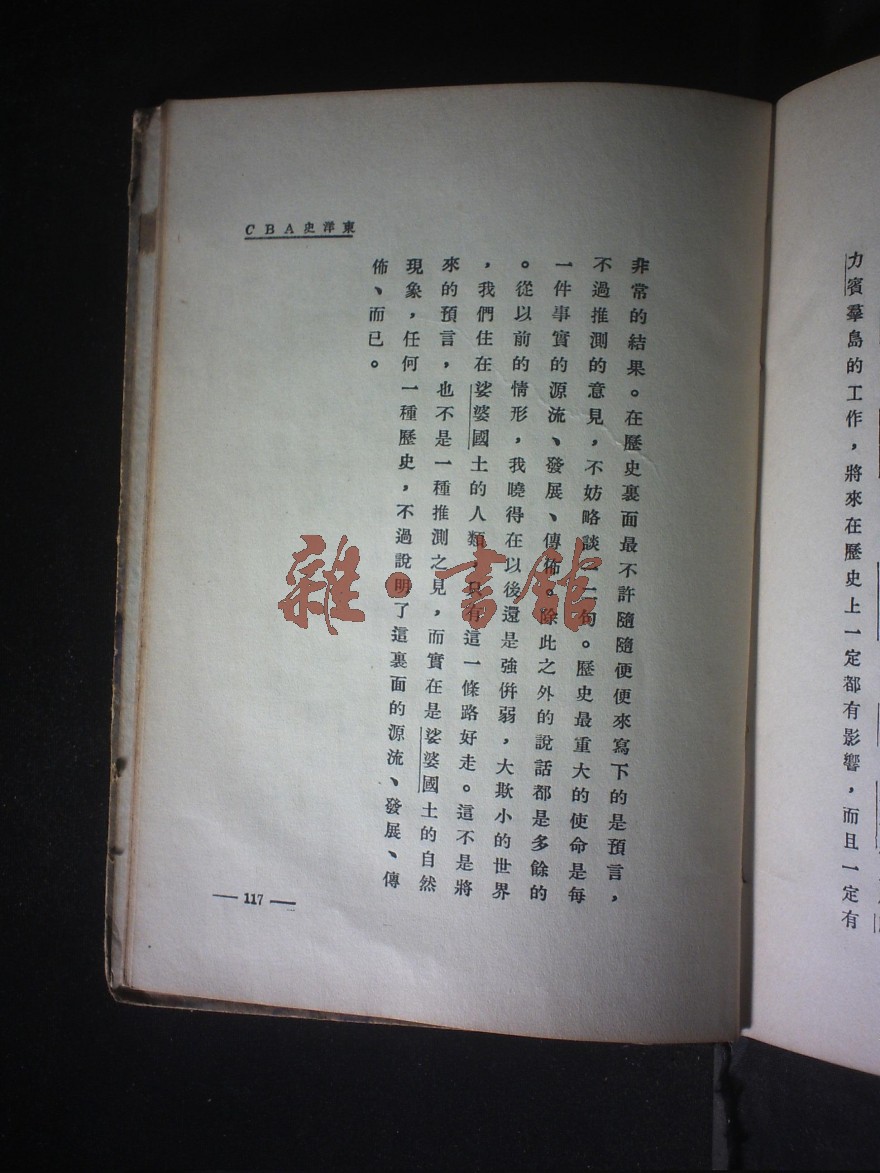 力賓羣島的工作，將來在歷史上一定都有影響，而且一定有
東洋史ABC
非常的結果。在歷史裏面最不許隨隨便便來寫下的是預言，
不過推測的意見，不妨略談一二句。歷史最重大的使命是每
一件事實的源流、發展、傳佈。除此之外的說話都是多餘的
。從以前的情形，我曉得在以後還是強併弱，大欺小的世界
，我們住在娑婆國土的人類，只有這一條路好走。這不是將
來的預言，也不是一種推測之見，而實在是娑婆國土的自然
現象，任何一種歷史，不過說明了這裏面的源流、發展、傳
佈、而已。
— 117 —
雜·書館